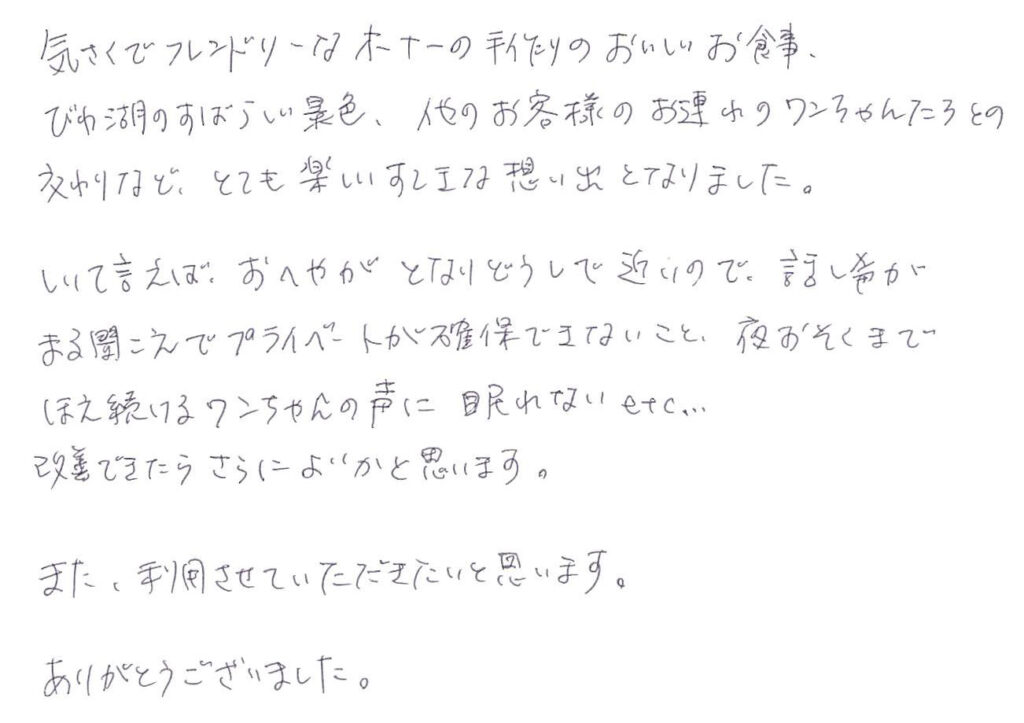 気さくでフレンドリーなオーナーの手作りのおいしいお食事、
びわ湖のすばらしい景色、他のお客様のお連れのワンちゃんたちとの
交わりなど、とても楽しいすてきな想い出となりました。
しいて言えば、おへやがとなりどうしで近いので、話し声が
まる聞こえでプライベートが確保できないこと、夜おそくまで
ほえ続けるワンちゃんの声に眠れないetc...
改善できたらさらによいかと思います。
また、利用させていただきたいと思います。
ありがとうございました。